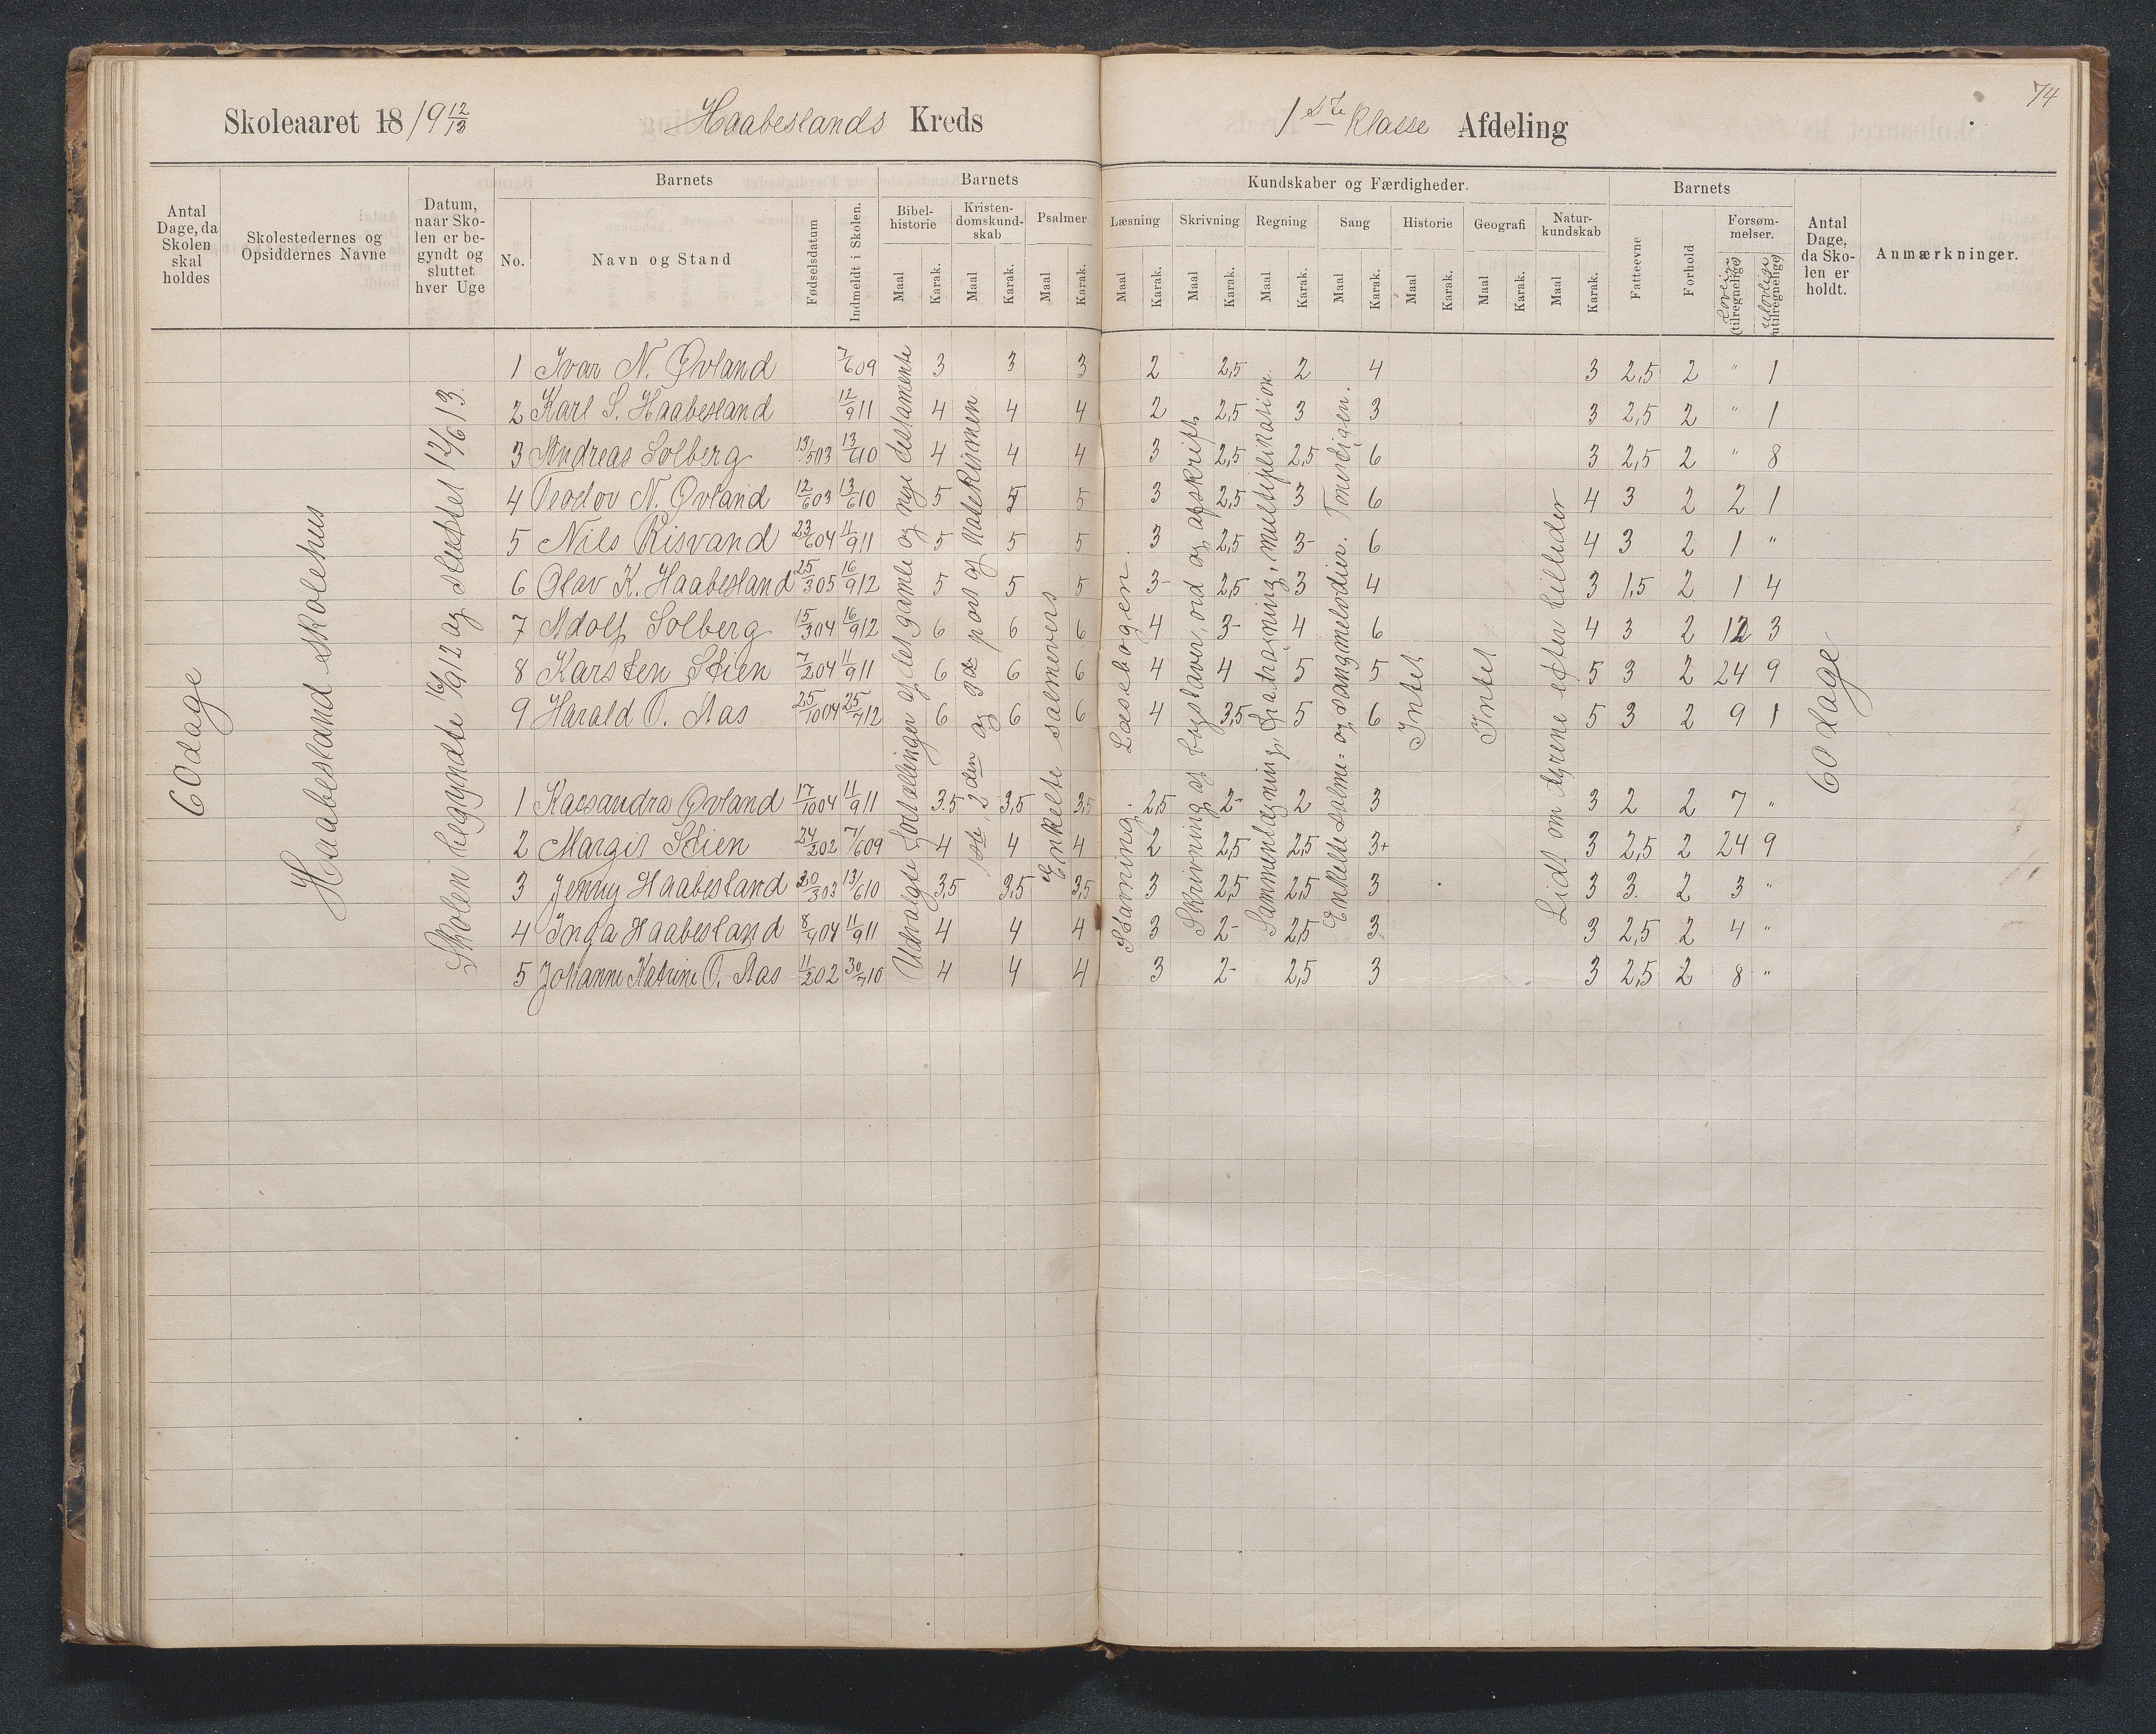 74
Skoleaaret 18/19 12/13 Haabeslands Kreds 1ste Klasse Afdeling
Barnets Barnets Kundskaber og Færdigheder. Barnets
Antal Dage, da Skolen skal holdes
Skolestedernes og Opsiddernes Navne
Datum, naar Skolen er begyndt og sluttet hver Uge
No. Navn og Stand Fødselsdatum Indmeldt i Skolen.
Bibelhistorie Kristendomskundskab Psalmer Læsning Skrivning Regning Sang Historie Geografi Naturkundskab
Maal Karak. Maal Karak. Maal Karak. Maal Karak. Maal Karak. Maal Karak. Maal Karak. Maal Karak. Maal Karak. Maal Karak.
Fatteevne Forhold Forsømmelser. Lovlige (tilregnelige) Ulovlige (utilregnelige)
Antal Dage, da Skolen er holdt.
Anmærkninger.
60 dage
Haabesland skolehus
Skolen begyndte 16/9 12 og sluttet 14/6 13.
Udvalgte fortællinger af det gamle og nye testamente
1ste, 2den og 3de part af Katekismen
Enkelte salmevers
Stavning. Læsebogen.
Skrivning af bogstaver, ord og afskrift.
Sammenlægning, fradragning, multiplikation.
Enkelte salme- og sangmelodier. Tonestigen.
Intet
Intet
Lidt om dyrene efter billeder
60 dage
1 Ivar N. Øvland 7/6 09 3 3 3 2 2,5 2 4 3 2,5 2 " 1
2 Karl S. Haabesland 12/9 11 4 4 4 2 2,5 3 3 3 2,5 2 " 1
3 Andreas Solberg 13/5 03 13/6 10 4 4 4 3 2,5 2,5 6 3 2,5 2 " 8
4 Teodor N. Øvland 12/6 03 13/6 10 5 5 5 3 2,5 3 6 4 3 2 2 1
5 Nils Risvand 23/6 04 11/9 11 5 5 5 3 2,5 3- 6 4 3 2 1 "
6 Olav K. Haabesland 25/3 05 16/9 12 5 5 5 3- 2,5 3 4 3 1,5 2 1 4
7 Adolf Solberg 15/3 04 16/9 12 6 6 6 4 3- 4 6 4 3 2 12 3
8 Karsten Stien 7/2 04 11/9 11 6 6 6 4 4 5 5 5 3 2 24 9
9 Harald O. Aas 25/10 04 25/7 12 6 6 6 4 3,5 5 6 5 3 2 9 1
1 Kassandra Øvland 17/10 04 11/9 11 3,5 3,5 3,5 2,5 2- 2 3 3 2 2 7 "
2 Margit Stien 24/2 02 7/6 09 4 4 4 2 2,5 2,5 3+ 3 2,5 2 24 9
3 Jenny Haabesland 20/3 03 13/6 10 3,5 3,5 3,5 3 2,5 2,5 3 3 3. 2 3 "
4 Inga Haabesland 8/4 04 11/9 11 4 4 4 3 2- 2,5 3 3 2,5 2 4 "
5 Johanne Katrine O. Aas 11/2 02 30/7 10 4 4 4 3 2- 2,5 3 3 2,5 2 8 "